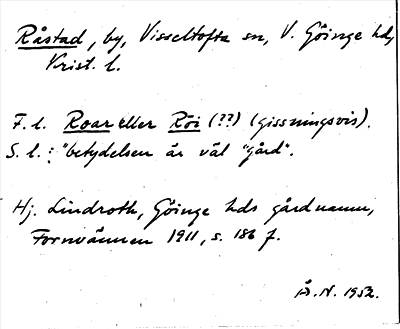 Råstad, by, Visseltofta sn, V. Göinge hd,
Krist. l.
F. l. Roar eller Röi (??) (gissningsvis).
S. l.: "betydelsen är väl "gård".
Hj. Lindroth, Göinge hds gårdnamn,
Fornvännen 1911, s. 186 f.
Å. N. 1952.